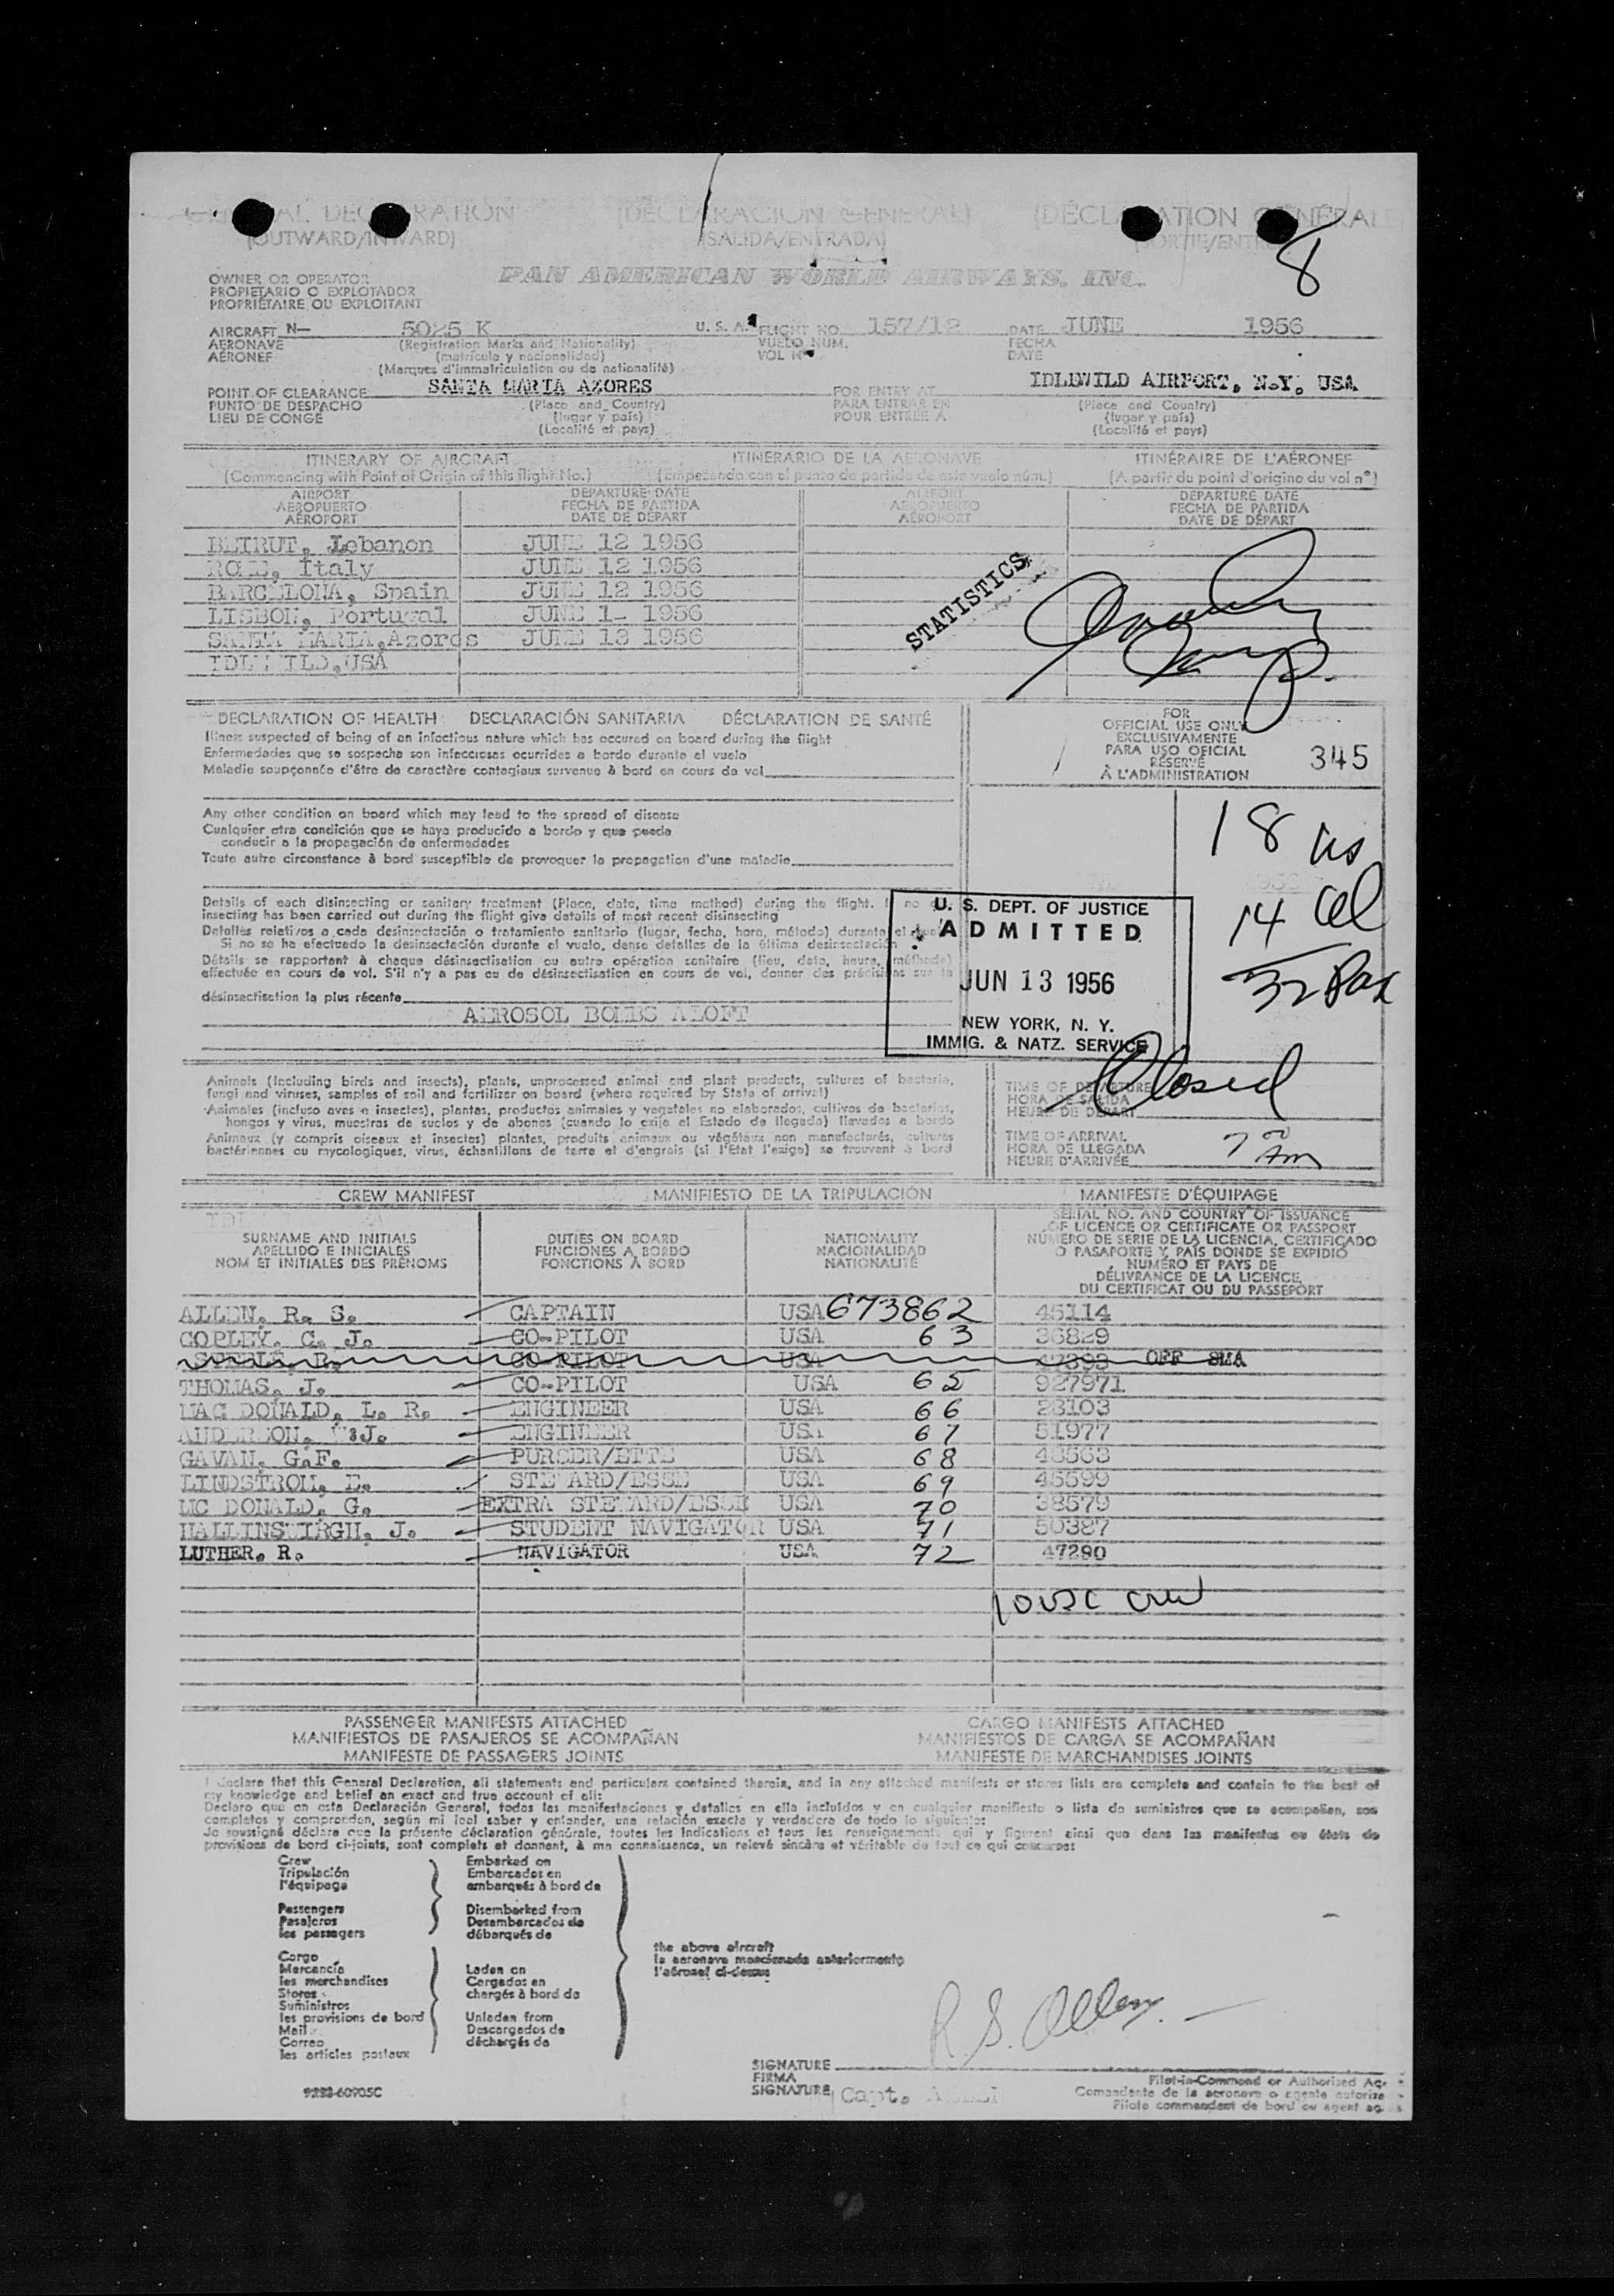 GENERAL DECLARATION (DECLARACIÓN GENERAL) (DÉCLARATION GÉNÉRALE)
(OUTWARD/INWARD) (SALIDA/ENTRADA) (SORTIE/ENTRÉE)
8
OWNER OR OPERATOR
PROPIETARIO O EXPLOTADOR
PROPRIÉTAIRE OU EXPLOITANT
PAN AMERICAN WORLD AIRWAYS, INC.
AIRCRAFT N— 5025 K U. S. A. FLIGHT NO. 157/12 DATE JUNE 1956
AERONAVE (Registration Marks and Nationality) VUELO NUM. FECHA
AÉRONEF (matrícula y nacionalidad) VOL Nº DATE
(Marques d'immatriculation ou de nationalité)
POINT OF CLEARANCE SANTA MARIA AZORES FOR ENTRY AT IDLEWILD AIRPORT, N.Y. USA
PUNTO DE DESPACHO (Place and Country) PARA ENTRAR EN (Place and Country)
LIEU DE CONGÉ (lugar y país) POUR ENTRÉE A (lugar y país)
(Localité et pays) (Localité et pays)
ITINERARY OF AIRCRAFT ITINERARIO DE LA AERONAVE ITINÉRAIRE DE L'AÉRONEF
(Commencing with Point of Origin of this flight No.) (Empezando con el punto de partida de este vuelo núm.) (A partir du point d'origine du vol nº)
AIRPORT DEPARTURE DATE AIRPORT DEPARTURE DATE
AEROPUERTO FECHA DE PARTIDA AEROPUERTO FECHA DE PARTIDA
AÉROPORT DATE DE DÉPART AÉROPORT DATE DE DÉPART
BEIRUT, Lebanon JUNE 12 1956
ROME, Italy JUNE 12 1956
BARCELONA, Spain JUNE 12 1956
LISBON, Portugal JUNE 1 1956
SANTA MARIA, Azores JUNE 13 1956
IDLEWILD, USA
STATISTICS
DECLARATION OF HEALTH DECLARACIÓN SANITARIA DÉCLARATION DE SANTÉ
Illness suspected of being of an infectious nature which has occured on board during the flight
Enfermedades que se sospecha son infecciosas ocurridas a bordo durante el vuelo
Maladie soupçonnée d'être de caractère contagieux survenue à bord en cours de vol
FOR
OFFICIAL USE ONLY
EXCLUSIVAMENTE
PARA USO OFICIAL
RÉSERVÉ
À L'ADMINISTRATION
345
Any other condition on board which may lead to the spread of disease
Cualquier otra condición que se haya producido a bordo y que pueda
conducir a la propagación de enfermedades
Toute autre circonstance à bord susceptible de provoquer la propagation d'une maladie
18 us
14 al
32 Pax
Details of each disinsecting or sanitary treatment (Place, date, time method) during the flight. If no
insecting has been carried out during the flight give details of most recent disinsecting
Detalles relativos a cada desinsectación o tratamiento sanitario (lugar, fecha, hora, método) durante el vuelo
Si no se ha efectuado la desinsectación durante el vuelo, dense detalles de la última desinsectación
Détails se rapportant à chaque désinsectisation ou autre opération sanitaire (lieu, date, heure, méthode)
effectuée en cours de vol. S'il n'y a pas eu de désinsectisation en cours de vol, donner des précisions sur la
désinsectisation la plus récente
AEROSOL BOMBS ALOFT
U. S. DEPT. OF JUSTICE
ADMITTED
JUN 13 1956
NEW YORK, N. Y.
IMMIG. & NATZ. SERVICE
Closed
Animals (including birds and insects), plants, unprocessed animal and plant products, cultures of bacteria,
fungi and viruses, samples of soil and fertilizer on board (where required by State of arrival)
Animales (incluso aves e insectos), plantas, productos animales y vegetales no elaborados, cultivos de bacterias,
hongos y virus, muestras de suelos y de abonos (cuando lo exija el Estado de llegada) llevados a bordo
Animaux (y compris oiseaux et insectes) plantes, produits animaux ou végétaux non manufacturés, cultures
bactériennes ou mycologiques, virus, échantillons de terre et d'engrais (si l'Etat l'exige) se trouvent à bord
TIME OF DEPARTURE
HORA DE SALIDA
HEURE DE DÉPART
TIME OF ARRIVAL
HORA DE LLEGADA
HEURE D'ARRIVÉE
7 00 Am
CREW MANIFEST MANIFIESTO DE LA TRIPULACIÓN MANIFESTE D'ÉQUIPAGE
SURNAME AND INITIALS
APELLIDO E INICIALES
NOM ET INITIALES DES PRÉNOMS
DUTIES ON BOARD
FUNCIONES A BORDO
FONCTIONS À BORD
NATIONALITY
NACIONALIDAD
NATIONALITÉ
SERIAL NO. AND COUNTRY OF ISSUANCE
OF LICENCE OR CERTIFICATE OR PASSPORT
NÚMERO DE SERIE DE LA LICENCIA, CERTIFICADO
O PASAPORTE Y PAÍS DONDE SE EXPIDIÓ
NUMÉRO ET PAYS DE
DÉLIVRANCE DE LA LICENCE,
DU CERTIFICAT OU DU PASSEPORT
ALLEN, R. S. CAPTAIN USA 673862 45114
COPLEY, C. J. CO-PILOT USA 63 36829
CO-PILOT USA OFF SMA
THOMAS, J. CO-PILOT USA 65 927971
MAC DONALD, L. R. ENGINEER USA 66 23103
ANDERSON, J. ENGINEER USA 67 51977
GAVAN, G.F. PURSER/ETTE USA 68 48563
LINDSTROM, E. STEWARD/ESSE USA 69 45599
MC DONALD, G. EXTRA STEWARD/ESSE USA 70 38579
J. STUDENT NAVIGATOR USA 71 50387
LUTHER, R. NAVIGATOR USA 72 47290
10 USC Crew
PASSENGER MANIFESTS ATTACHED CARGO MANIFESTS ATTACHED
MANIFIESTOS DE PASAJEROS SE ACOMPAÑAN MANIFIESTOS DE CARGA SE ACOMPAÑAN
MANIFESTE DE PASSAGERS JOINTS MANIFESTE DE MARCHANDISES JOINTS
I declare that this General Declaration, all statements and particulars contained therein, and in any attached manifests or stores lists are complete and contain to the best of
my knowledge and belief an exact and true account of all:
Declaro que en esta Declaración General, todas las manifestaciones y detalles en ella incluídos y en cualquier manifiesto o lista de suministros que se acompañen, son
completos y comprenden, según mi leal saber y entender, una relación exacta y verdadera de todo lo siguiente:
Je soussigné déclare que la présente déclaration générale, toutes les indications et tous les renseignements qui y figurent ainsi que dans les manifestes ou états de
provisions de bord ci-joints, sont complets et donnent, à ma connaissance, un relevé sincère et véritable de tout ce qui concerne:
Crew Embarked on
Tripulación Embarcados en
l'équipage embarqués à bord de
Passengers Disembarked from
Pasajeros Desembarcados de
les passagers débarqués de
the above aircraft
la aeronave mencionada anteriormente
l'aéronef ci-dessus
Cargo
Mercancía Laden on
les marchandises Cargados en
Stores chargés à bord de
Suministros
les provisions de bord Unladen from
Mail Descargados de
Correo déchargés de
les articles postaux
R. S. Allen
SIGNATURE
FIRMA
SIGNATURE Capt. ALLEN
Pilot-in-Command or Authorized Ag
Comandante de la aeronave o agente autoriza
Pilote commandant de bord ou agent ag
9283-60905C